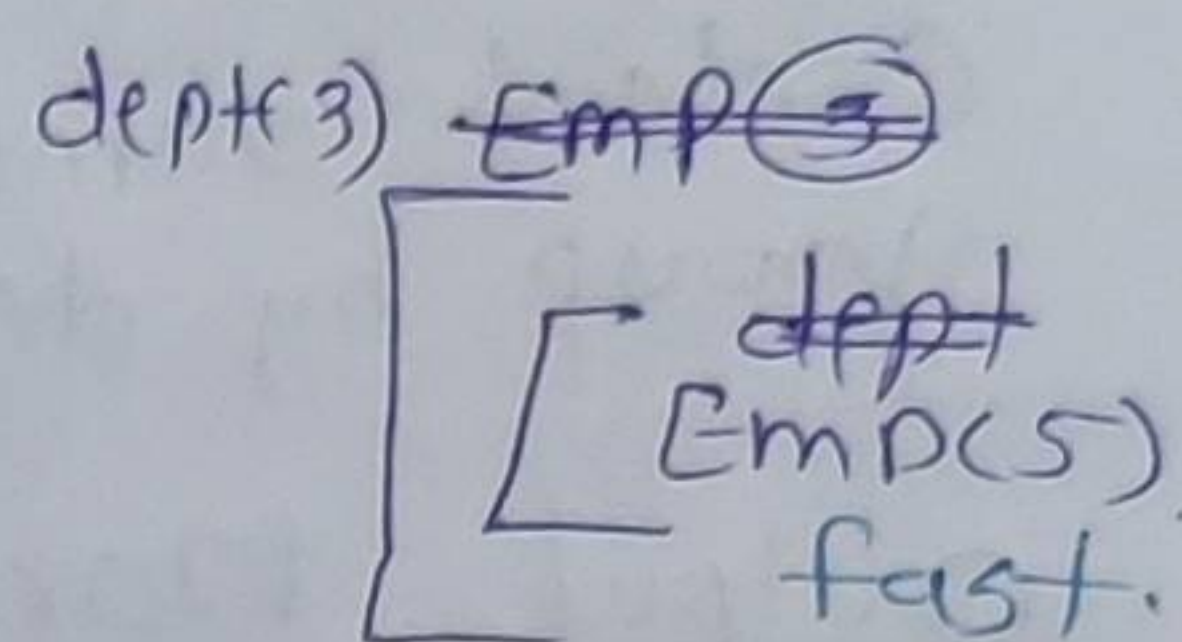 dept(3) Emp 3
dept
Emp(5)
fast.